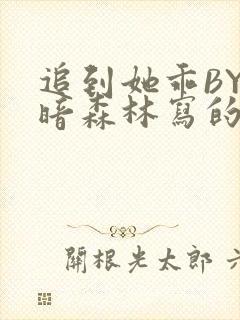 追到她乖BY
暗森林寫的
關根光太郎 六